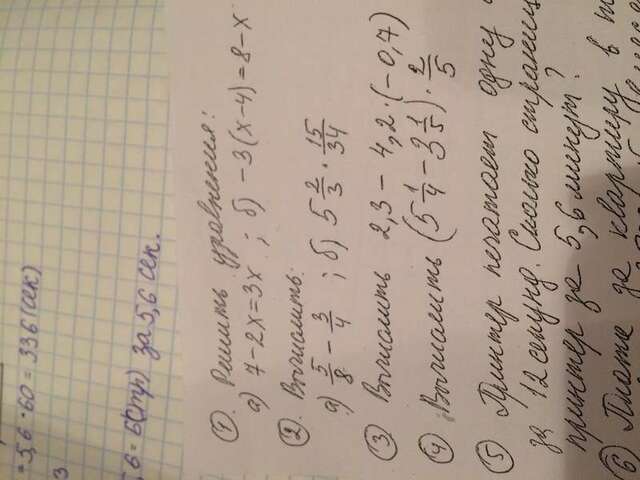 =5,6·60=336(сек)
3
5,6=6(стр) за 5,6 сек.
① Решить уравнения:
а) 7-2x=3x ; б) -3(x-4)=8-x
② Вычислить:
а) 5/8 - 3/4 ; б) 5 2/3 · 15/34
③ Вычислить 2,3-4,2·(-0,7)
④ Вычислить (5 1/4 - 3 1/5) · 2/5
⑤ Принтер печатает одну
за 12 секунд. Сколько страниц
принтер за 5,6 минут?
⑥ Плата за квартиру в